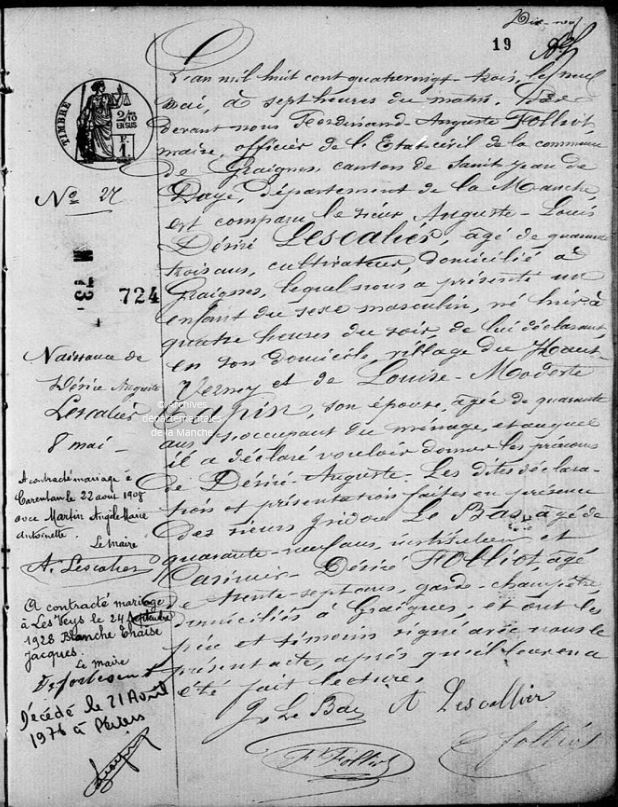 Dix-neuf
19
TIMBRE
2/10
EN SUS
F.
1
L'an mil huit cent quatrevingt-trois, le neuf
mai, à sept heures du matin, Par
devant nous Ferdinand-Auguste Folliot,
maire, officier de l'Etat civil de la commune
de Graignes, canton de Saint Jean de
Daye, département de la Manche,
est comparu le sieur, Auguste-Louis
Désiré Lescalier, agé de quarante
trois ans, cultivateur, domicilié à
Graignes, lequel nous a présenté un
enfant du sexe masculin, né hier à
quatre heures du soir de lui déclarant,
en son domicile, village du Haut-
Vernay et de Louise-Modeste
Capin, son épouse, agée de quarante
ans, s'occupant du ménage, et auquel
il a déclaré vouloir donner les prénoms
de Désiré-Auguste. Les dites déclara-
tions et présentation faites en présence
des sieurs Le Bas, agé de
quarante-neuf ans, instituteur et
Casimir-Désiré Folliot, agé
de trente-sept ans, garde-champêtre,
domiciliés à Graignes, et ont les
père et témoins signé avec nous le
présent acte, après qu'il leur en a
été fait lecture.
G Le Bas A Lescallier
F. Folliot
C folliot
No 27
M
73
724
Naissance de
Désiré Auguste
Lescalier
8 mai
A contracté mariage à
Carentan le 22 août 1908
avec Martin Angèle Marie
Antoinette.
Le Maire
A. Lescalier
A contracté mariage
à Les Veys le 24 septembre
1928 Blanche
Jacques.
Le Maire
Décédé le 21 Avril
1976 à Périers
© Archives
départementales
de la Manche